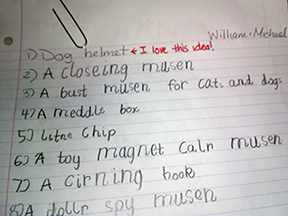 William + Michael
1) Dog helmet ← I love this idea!
2) A closeing musen
3) A bust musen for cats and dogs
4) A meddle box
5) litne chip
6) A toy magnet calr musen
7) A cirning book
8) A dollr spy musen